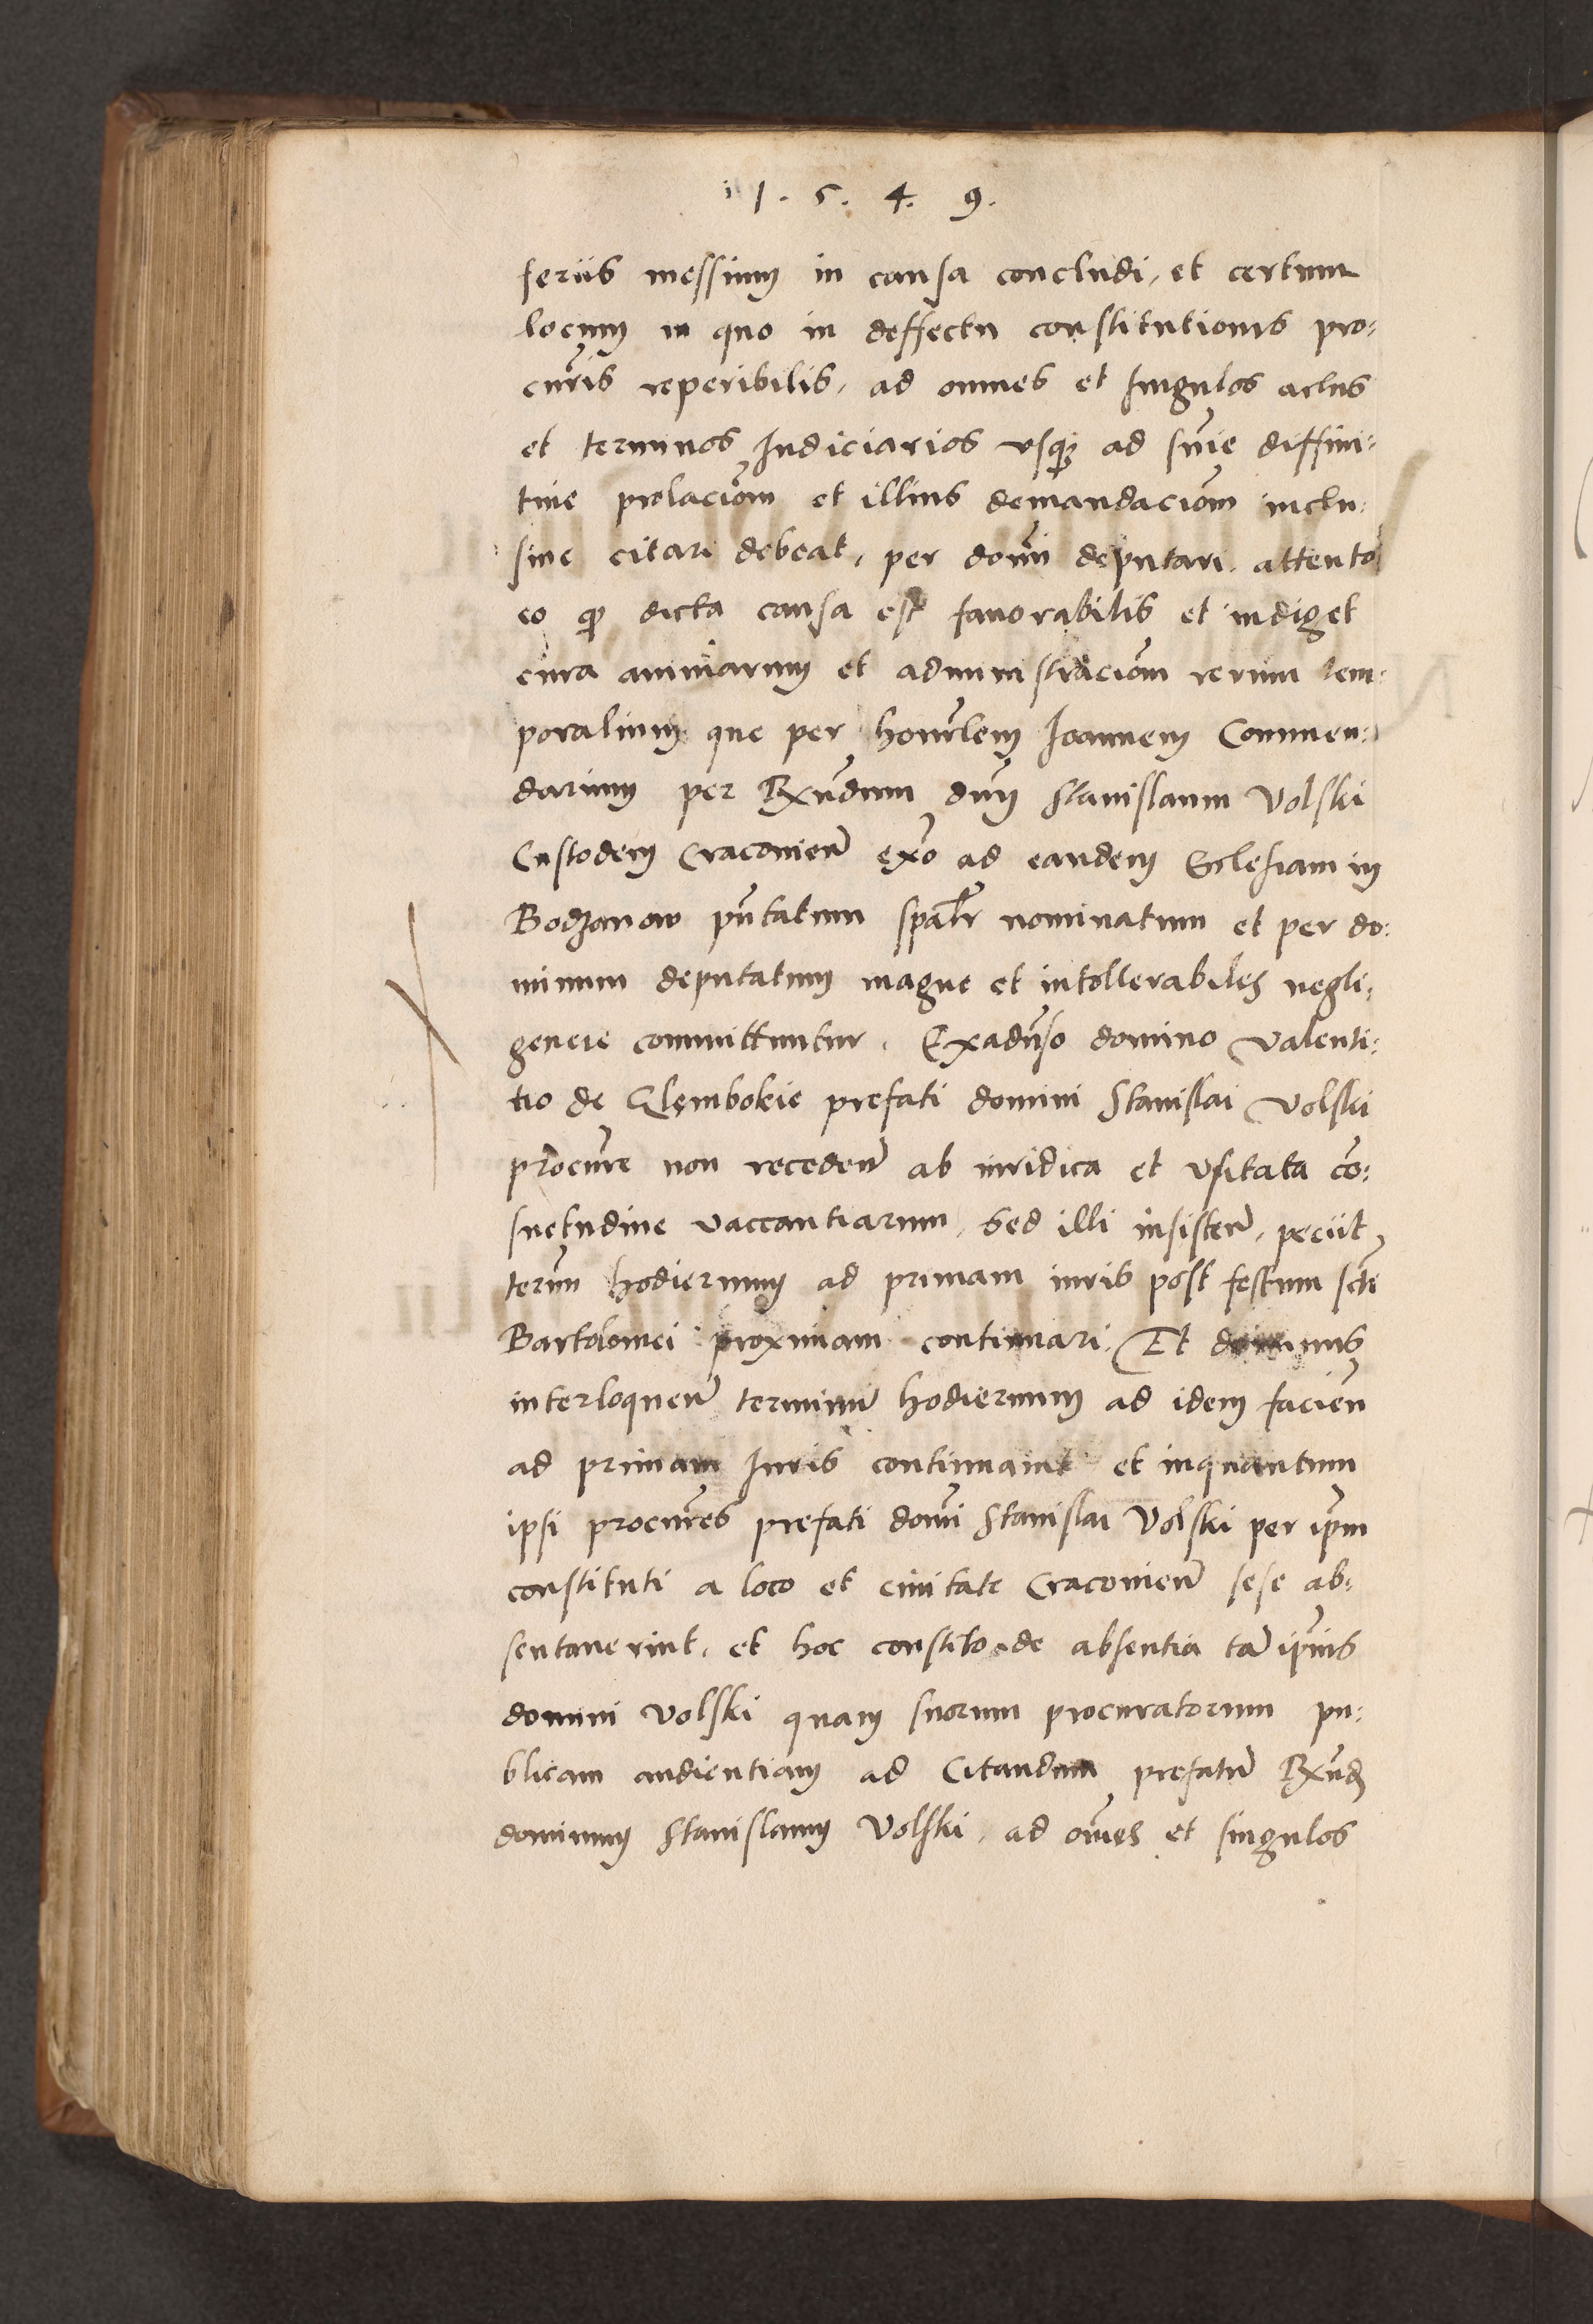 1. 5. 4. 9.
feriis messium in causa concludi, et certum
locum in quo in deffectu constitutionis pro:
curis reperibilis, ad omnes et singulos actus
et terminos Iudiciarios vsq3 ad snie diffini:
tiue prolaciom et illius demandaciom inclu:
siue citari debeat, per domi deputari. attento
eo q dicta causa est fauorabilis et indiget
cura animarum et administraciom rerum tem:
poralium que per honorlem Ioannem Commen:
darium per Rxndum dnm Stanislaum Volski
Custodem Cracouien exo ad eandem Eclesiam in
Bodzanow pntatum spalr nominatum et per do:
minum deputatum magne et intollerabiles negli:
gencie committuntur. Exaduso domino Valenti:
no de Glembokie prefati domini Stanislai Volski
procure non receden ab iuridica et vsitata co:
suetudine vaccantiarum, sed illi insisten, peciit
termn hodiernum ad primam iuris post festum scti
Bartolomei proximam continuari. Et dominus
interloquen terminu hodiernum ad idem facien
ad primam Iuris continuauit et inquantum
ipsi procures prefati domi Stanislai Volski per ipm
constituti a loco et ciuitate Cracouien sese ab:
sentauerint, et hoc constito de absentia ta ipius
domini Volski quam suorum procuratorum pu:
blicam audientiam ad Citandum prefatu Rxnd
dominum Stanislaum Volski, ad omes et singulos